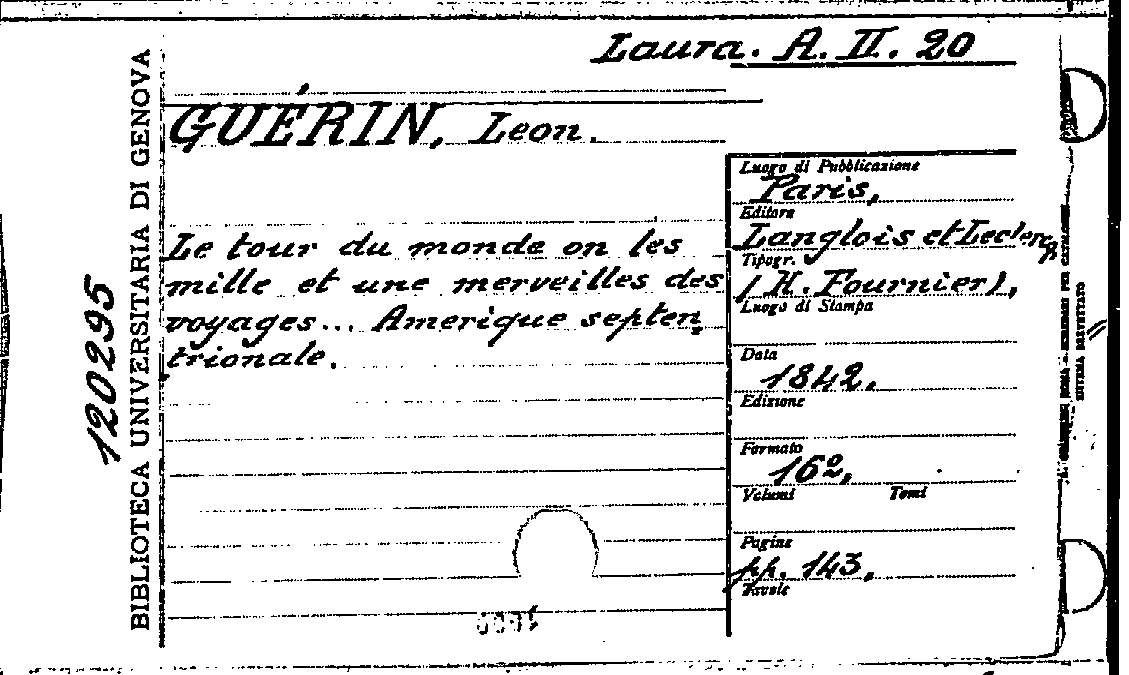 Laura. A. II. 20
GUÉRIN, Leon.
Le tour du monde on les
mille et une merveilles des
voyages... Amerique septen
trionale.
Luogo di Pubblicazione
Paris,
Editore
Langlois et Leclercq
Tipogr.
(H. Fournier),
Luogo di Stampa
Data
1842.
Edizione
Formato
16º,
Volumi Tomi
Pagine
pp. 143,
Tavole
120295
BIBLIOTECA UNIVERSITARIA DI GENOVA